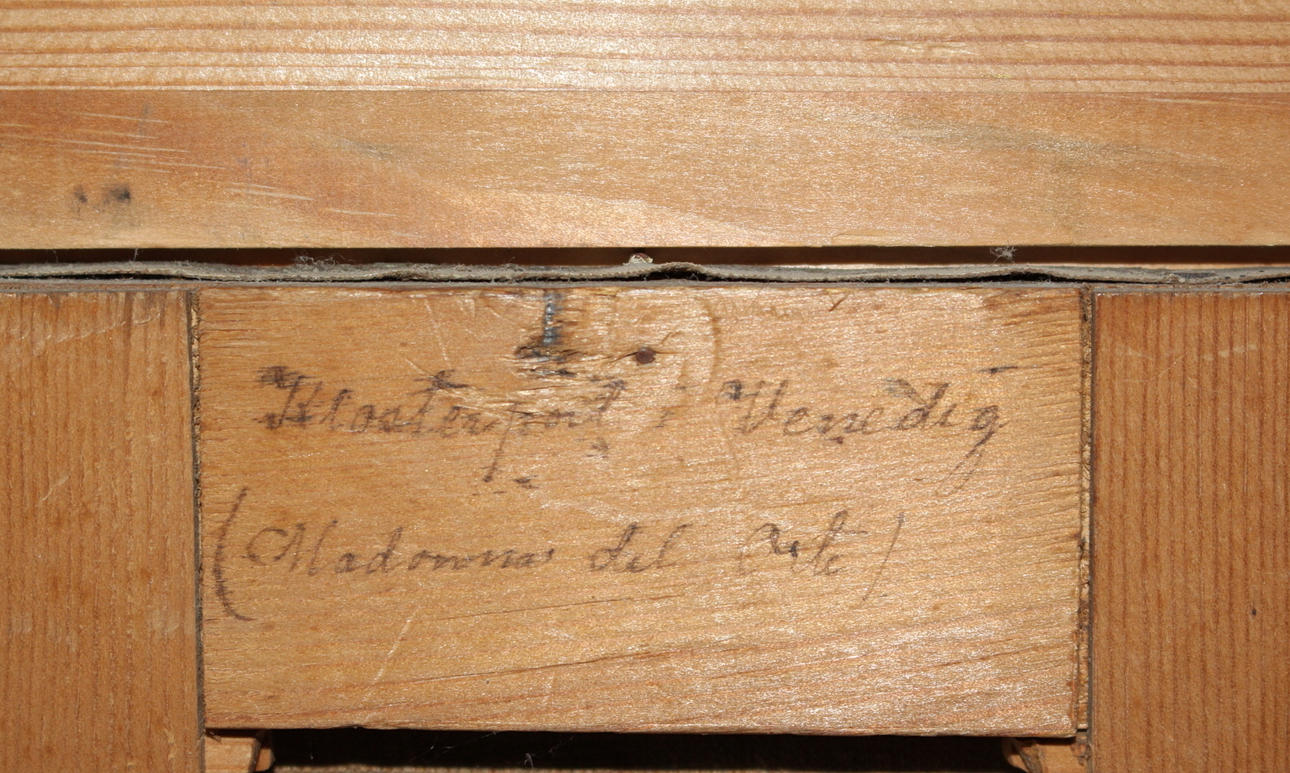 Klosterport i Venedig
(Madonna del Orto)